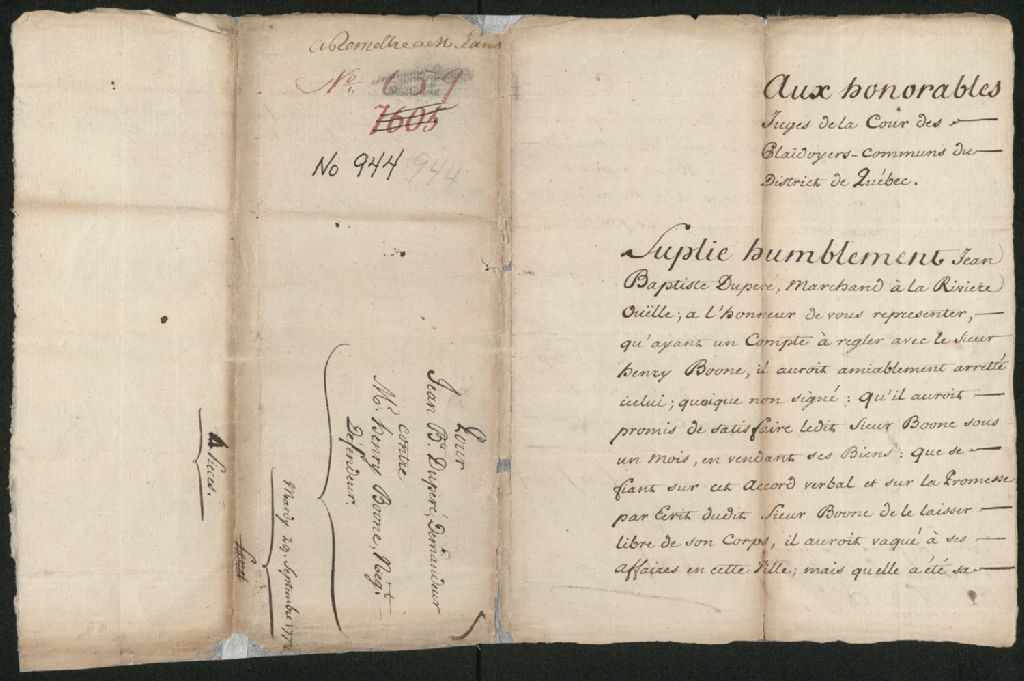 No. 659
7605
No 944 944
Pour
Jean Bte. Duperé, Demandeur
contre
Mr. Henry Boone, Negt.
Defendeur.
Mardy 29. Septembre
4 Pieces.
Aux honorables
Juges de la Cour des
Plaidoyers-Communs du
District de Québec.
Suplie humblement Jean
Baptiste Duperé, Marchand à la Riviere
Ouëlle; a l'honneur de vous representer,
qu'ayant un Compte à regler avec le Sieur
henry Boone, il auroit amiablement arretté
icelui; quoique non signé: qu'il auroit
promis de satisfaire ledit Sieur Boone sous
un mois, en vendant ses Biens: que se
fiant sur cet Accord verbal et sur la Promesse
par Ecrit dudit Sieur Boone de le laisser
libre de son Corps, il auroit vaqué à ses
affaires en cette Ville; mais quelle a été sa